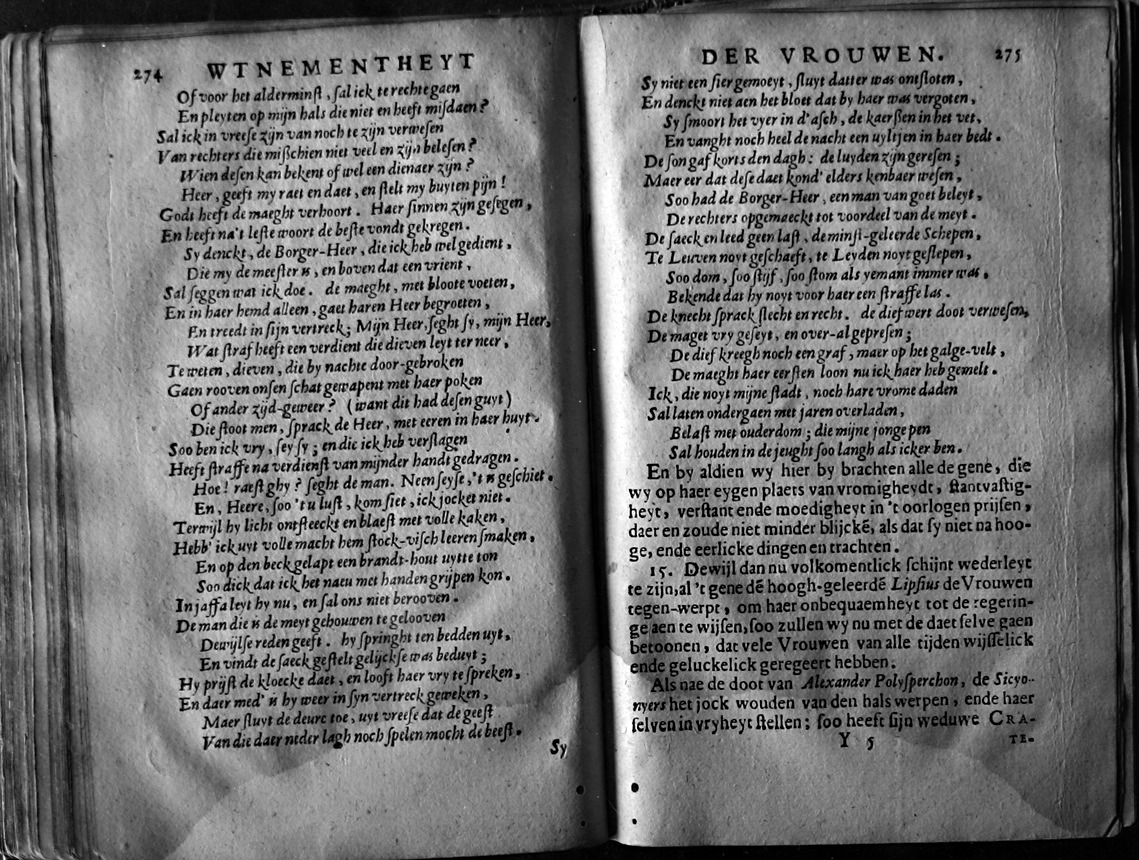 274 WTNEMENTHEYT
Of voor het alderminst, sal ick te rechte gaen
En pleyten op mijn hals die niet en heeft misdaen?
Sal ick in vreese zijn van noch te zijn verwesen
Van rechters die mißchien niet veel en zijn belesen?
Wien desen kan bekent of wel een dienaer zijn?
Heer, geeft my raet en daet, en stelt my buyten pijn!
Godt heeft de maeght verhoort. Haer sinnen zijn gesegen,
En heeft na't leste woort de beste vondt gekregen.
Sy denckt, de Borger-Heer, die ick heb wel gedient,
Die my de meester is, en boven dat een vrient,
Sal seggen wat ick doe. de maeght, met bloote voeten,
En in haer hemd alleen, gaet haren Heer begroeten,
En treedt in sijn vertreck; Mijn Heer, seght sy, mijn Heer,
Wat straf heeft een verdient die dieven leyt ter neer,
Te weten, dieven, die by nachte door-gebroken
Gaen rooven onsen schat gewapent met haer poken
Of ander zijd-geweer? (want dit had desen guyt)
Die stoot men, sprack de Heer, met eeren in haer huyt.
Soo ben ick vry, sey sy; en die ick heb verslagen
Heeft straffe na verdienst van mijnder handt gedragen.
Hoe! raest ghy? seght de man. Neen seyse, 't is geschiet.
En, Heere, soo 't u lust, kom siet, ick jocket niet.
Terwijl hy licht ontsteeckt en blaest met volle kaken,
Hebb' ick uyt volle macht hem stock-visch leeren smaken,
En op den beck gelapt een brandt-hout uytte ton
Soo dick dat ick het naeu met handen grijpen kon.
In jaffa leyt hy nu, en sal ons niet berooven.
De man die is de meyt gehouwen te gelooven
Dewijlse reden geeft. hy springht ten bedden uyt,
En vindt de saeck gestelt gelijckse was beduyt;
Hy prijst de kloecke daet, en looft haer vry te spreken,
En daer med' is hy weer in syn vertreck geweken,
Maer sluyt de deure toe, uyt vreese dat de geest
Van die daer neder lagh noch spelen mocht de beest.
Sy
DER VROUWEN. 275
Sy niet een sier gemoeyt, sluyt datter was ontsloten,
En denckt niet aen het bloet dat by haer was vergoten,
Sy smoort het vyer in d'asch, de kaerßen in het vet,
En vanght noch heel de nacht een uyltjen in haer bedt.
De son gaf korts den dagh: de luyden zijn geresen;
Maer eer dat dese daet kond' elders kenbaer wesen,
Soo had de Borger-Heer, een man van goet beleyt,
De rechters opgemaeckt tot voordeel van de meyt.
De saeck en leed geen last, de minst-geleerde Schepen,
Te Leuven noyt geschaeft, te Leyden noyt geslepen,
Soo dom, soo stijf, soo stom als yemant immer was,
Bekende dat hy noyt voor haer een straffe las.
De knecht sprack slecht en recht. de dief wert doot verwesen,
De maget vry geseyt, en over-al gepresen;
De dief kreegh noch een graf, maer op het galge-velt,
De maeght haer eersten loon nu ick haer heb gemelt.
Ick, die noyt mijne stadt, noch hare vrome daden
Sal laten ondergaen met jaren overladen,
Belast met ouderdom; die mijne jonge pen
Sal houden in de jeught soo langh als icker ben.
En by aldien wy hier by brachten alle de gene, die
wy op haer eygen plaets van vromigheydt, stantvastig-
heyt, verstant ende moedigheyt in 't oorlogen prijsen,
daer en zoude niet minder blijckē, als dat sy niet na hoo-
ge, ende eerlicke dingen en trachten.
15. Dewijl dan nu volkomentlick schijnt wederleyt
te zijn, al 't gene dē hoogh-geleerdē Lipsius de Vrouwen
tegen-werpt, om haer onbequaemheyt tot de regerin-
ge aen te wijsen, soo zullen wy nu met de daet selve gaen
betoonen, dat vele Vrouwen van alle tijden wijsselick
ende geluckelick geregeert hebben.
Als nae de doot van Alexander Polysperchon, de Sicyo-
nyers het jock wouden van den hals werpen, ende haer
selven in vryheyt stellen; soo heeft sijn weduwe CRA-
Y 5 TE-